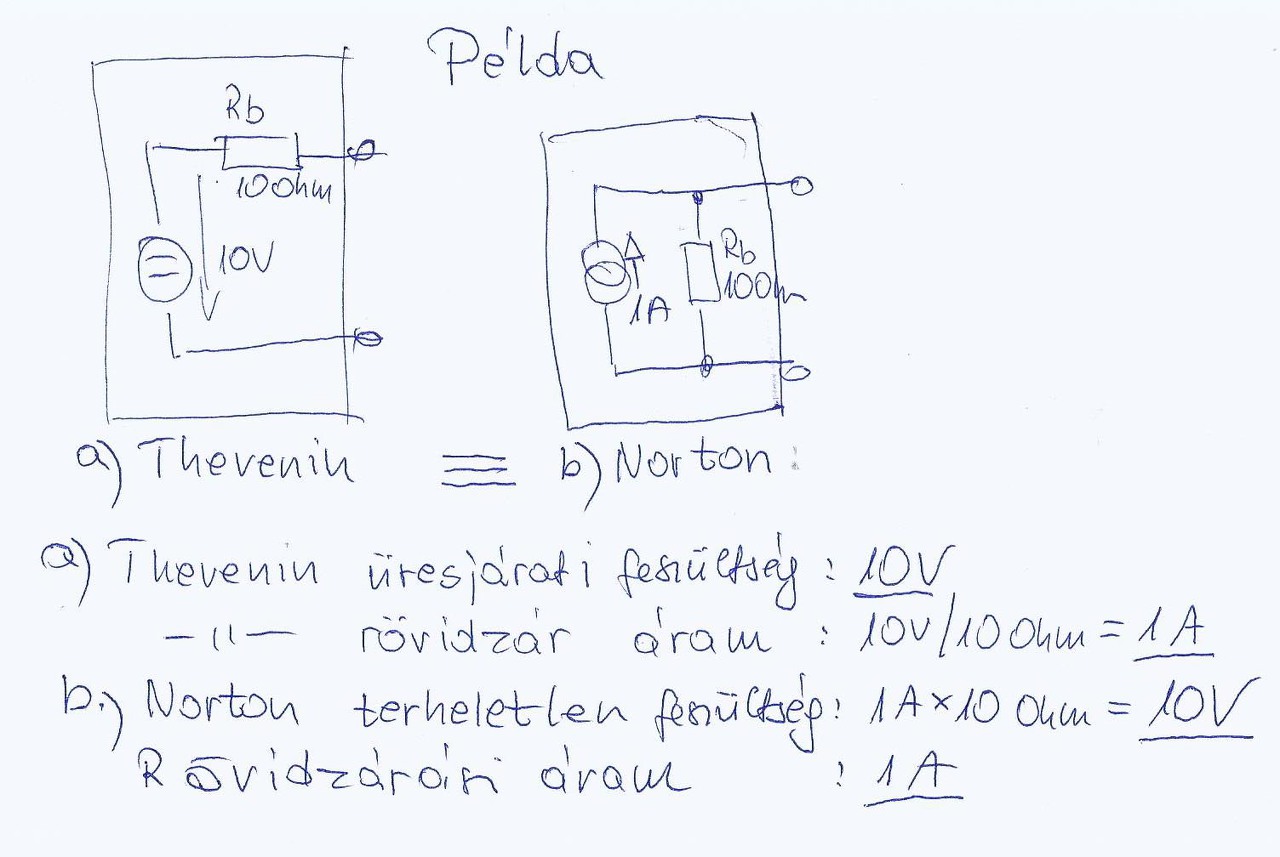 Példa
Rb
10 Ohm
10V
Rb
10 Ohm
1A
a) Thevenin ≡ b) Norton:
a) Thevenin üresjárati feszültség : 10V
–"– rövidzár áram : 10V/10 Ohm = 1A
b.) Norton terheletlen feszültség: 1A×10 Ohm = 10V
Rövidzárási áram : 1A